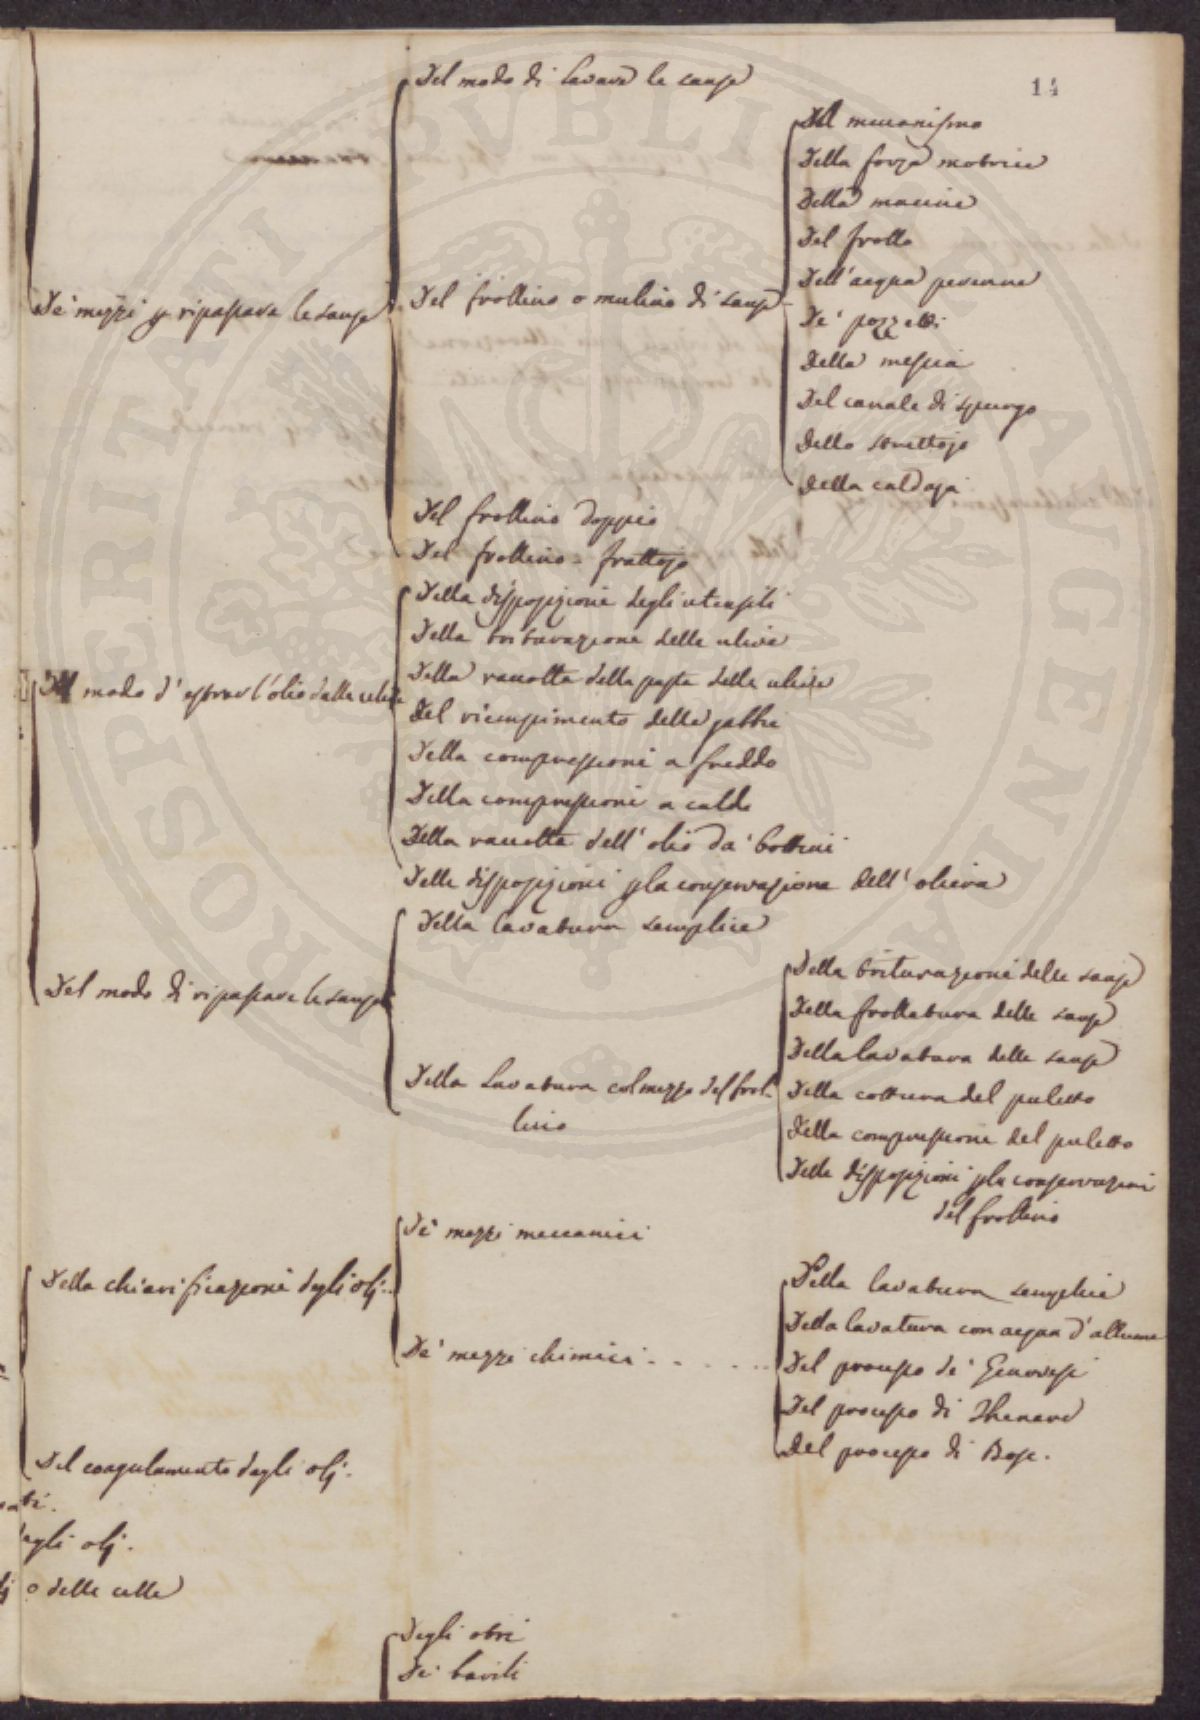 14
Del modo di lavare le sanse
Del meccanismo
Della forza motrice
Delle macine
Del frollo
Dell'acqua perenne
De' mezzi p ripassare le sanse
Del frollino o mulino di sanse
De' pozzetti
Della mescia
Del canale di spurgo
Dello strettojo
Della caldaja
Del frollino doppio
Del frollino = frattojo
Della disposizione degli utensili
Della triturazione delle ulive
Del modo d'estrar l'olio dalle ulive
Della raccolta della pasta delle ulive
Del riempimento delle gabbie
Della compressione a freddo
Della compressione a caldo
Della raccolta dell'olio da' bottini
Delle disposizioni p la conservazione dell'oliera
Della lavatura semplice
Del modo di ripassare le sanse
Della triturazione delle sanse
Della frollatura delle sanse
Della lavatura delle sanse
Della lavatura col mezzo del frol-
lino
Della cottura del puletto
Della compressione del puletto
Delle disposizioni p la conservazione
del frollino
De' mezzi meccanici
Della chiarificazione degli olj..
Della lavatura semplice
Della lavatura con acqua d'allume
De' mezzi chimici . . . . . .
Del processo de' Genovesi
Del processo di Thenard
Del processo di Bosc.
Del coagulamento degli olj.
degli olj.
o delle celle
Degli otri
De' barili